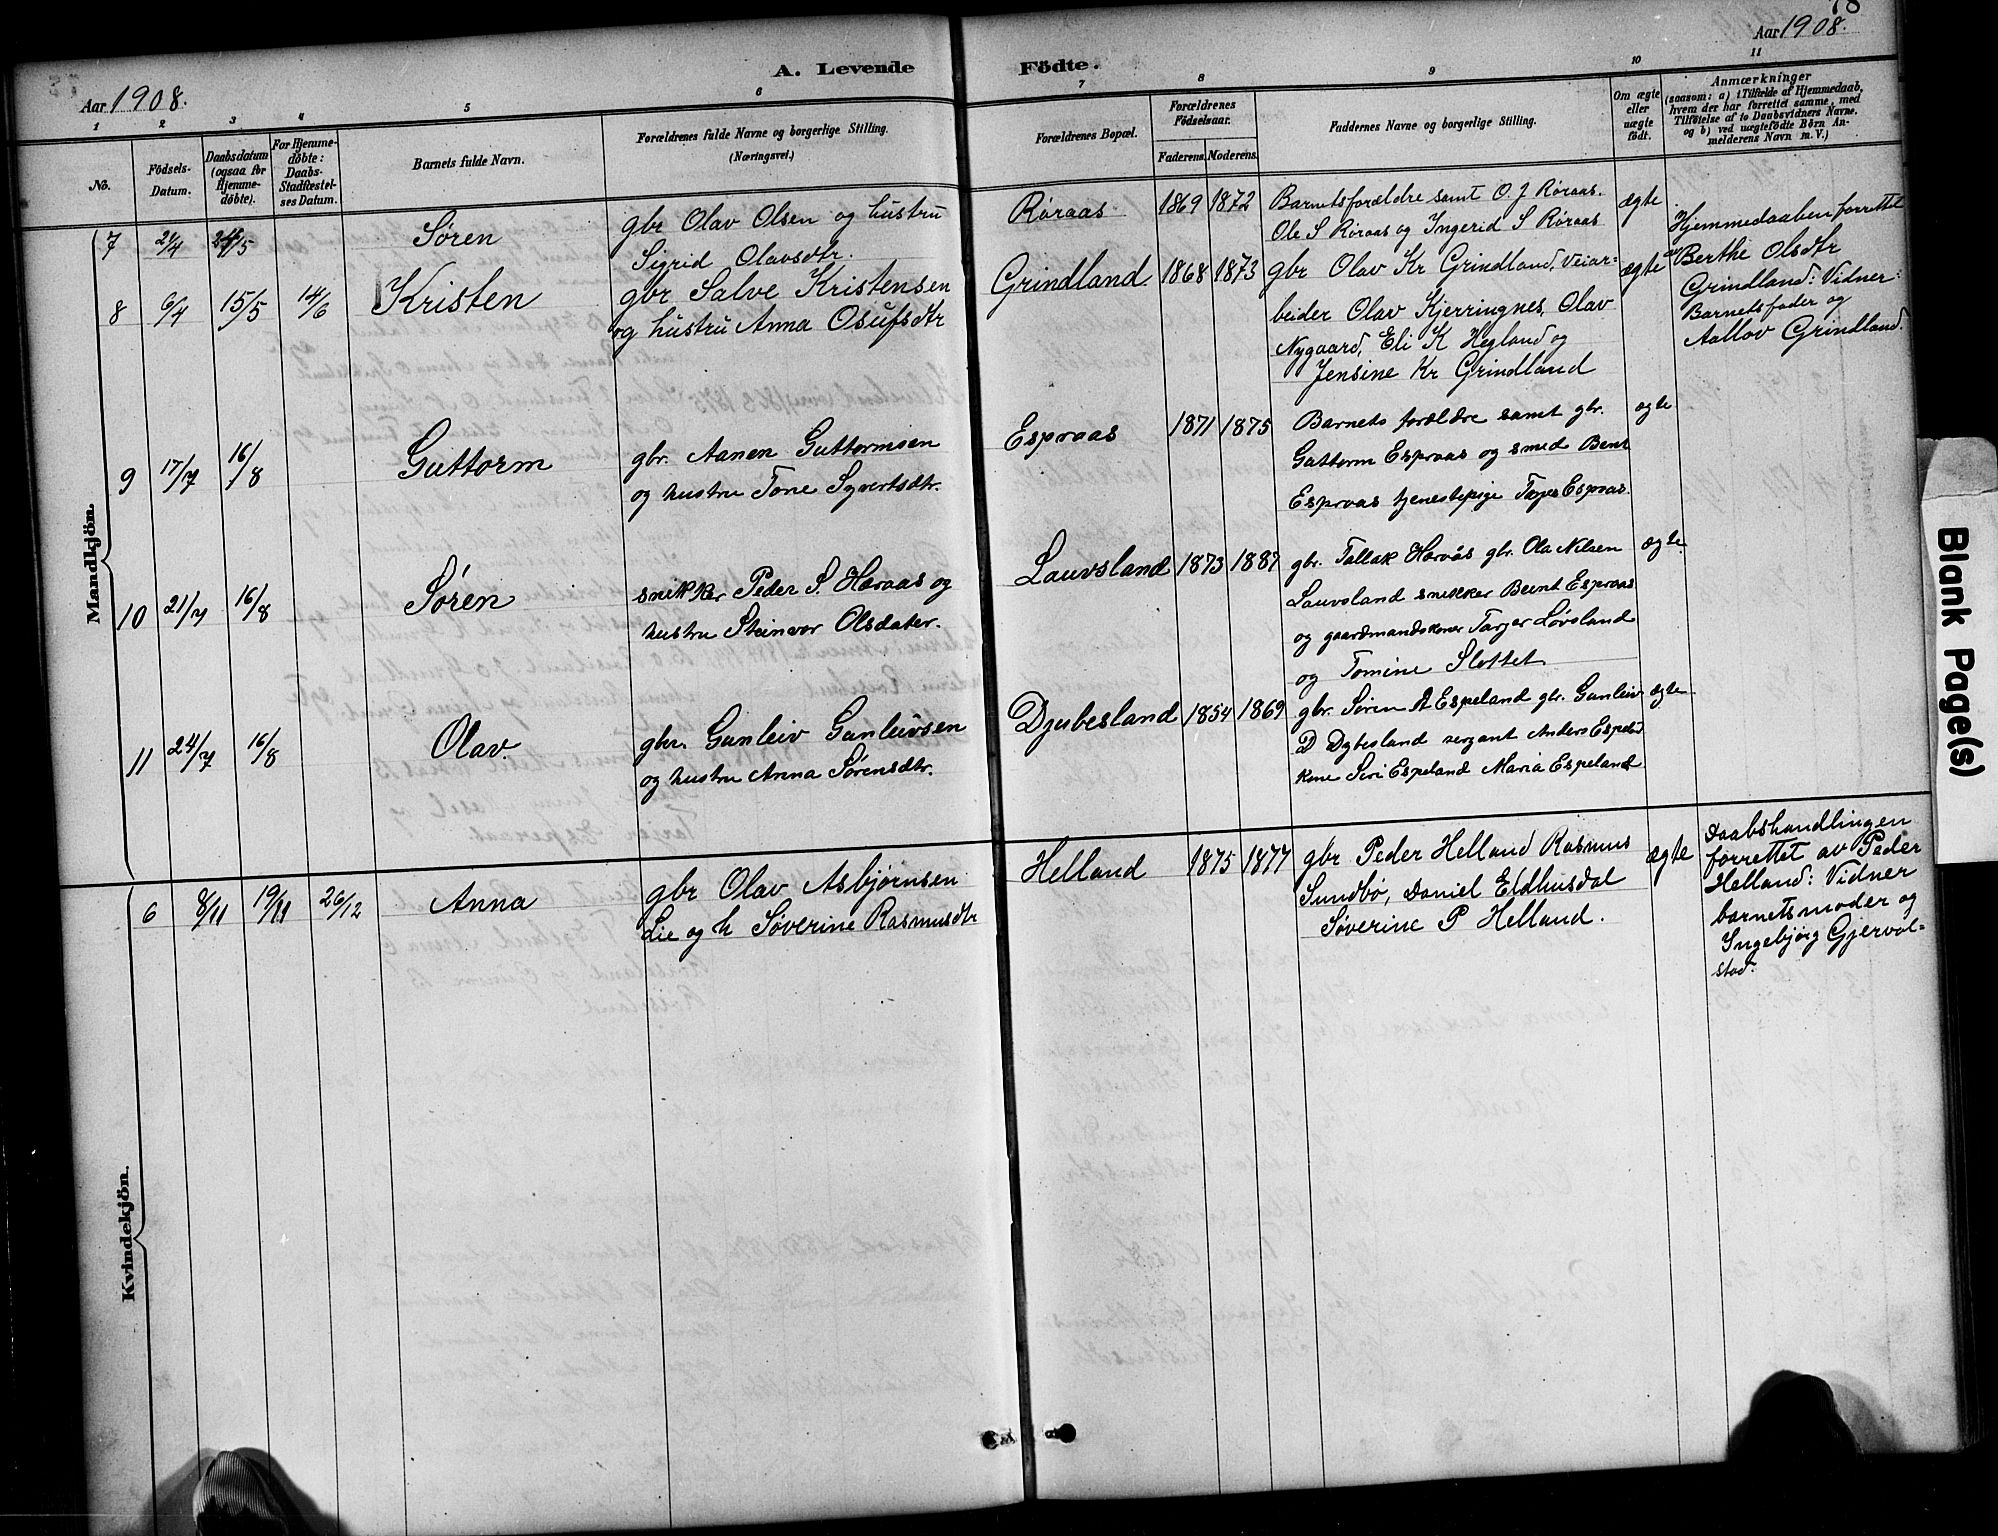 78
Aar 1908.
Aar 1908.
A. Levende Födte.
1 2 3 4 5 6 7 8 9 10 11
No.
Födsels-
Datum.
Daabsdatum
(ogsaa for
Hjemme-
döbte).
For Hjemme-
döbte:
Daabs-
Stadfæstel-
ses Datum.
Barnets fulde Navn.
Forældrenes fulde Navne og borgerlige Stilling.
(Næringsvei.)
Forældrenes Bopæl.
Forældrenes
Födselsaar.
Faderens. Moderens.
Faddernes Navne og borgerlige Stilling.
Om ægte
eller
uægte
födt.
Anmærkninger
(saasom: a) i Tilfælde af Hjemmedaab,
hvem der har forrettet samme, med
Tilföielse af to Daabsvidners Navne,
og b) ved uægtefödte Börn An-
melderens Navn m. V.)
Mandkjön.
7 2/4 24/5 Søren
gbr Olav Olsen og hustru
Sigrid Olavsdtr.
Røraas 1869 1872
Barnets forældre samt O. J Røraas.
Ole S Røraas og Ingerid S Røraas
ægte
8 6/4 15/5 14/6 Kristen
gbr Salve Kristensen
og hustru Anna Osufsdtr
Grindland 1868 1873
gbr Olav Kr Grindland, Veiar-
beider Olav Kjerringnes, Olav
Nygaard, Eli K Hegland og
Jensine Kr Grindland
ægte
Hjemmedaaben forrettet
av Berthe Olsdtr
Grindland: Vidner:
Barnets fader og
Aallov Grindland.
9 17/7 16/8 Guttorm
gbr. Aanen Guttormsen
og hustru Tone Syvertsdtr.
Espraas 1871 1875
Barnets forældre samt gbr.
Guttorm Espraas og smed Bent
Espraas tjenestepige Tarjer Espraas.
ægte
10 21/7 16/8 Søren
snekker Peder S. Høraas og
hustru Steinvor Olsdater.
Lauvsland 1873 1887
gbr. Tallak Horvås gbr. Ola Nilsen
Lauvsland snekker Beint Espraas
og gaardmandskoner Tarjer Løvsland
og Tomine Slottet
ægte
11 24/7 16/8 Olav.
gbr. Gunleiv Gunleivsen
og hustru Anna Sørensdtr.
Djubesland 1854 1869
gbr. Søren A Espeland gbr. Gunleiv
D Dybesland sergant Anders Espeld
kone Siri Espeland Maria Espeland
ægte
Kvindekjön.
6 8/11 19/11 26/12 Anna
gbr Olav Asbjørnsen
Lie og h Søverine Rasmusdtr
Helland 1875 1877
gbr Peder Helland Rasmus
Sundbø, Daniel Eldhusdal
Søverine P Helland.
ægte
Daabshandlingen
forrettet av Peder
Helland: Vidner
barnets moder og
Ingebjørg Gjervol-
stad.
Blank Page(s)